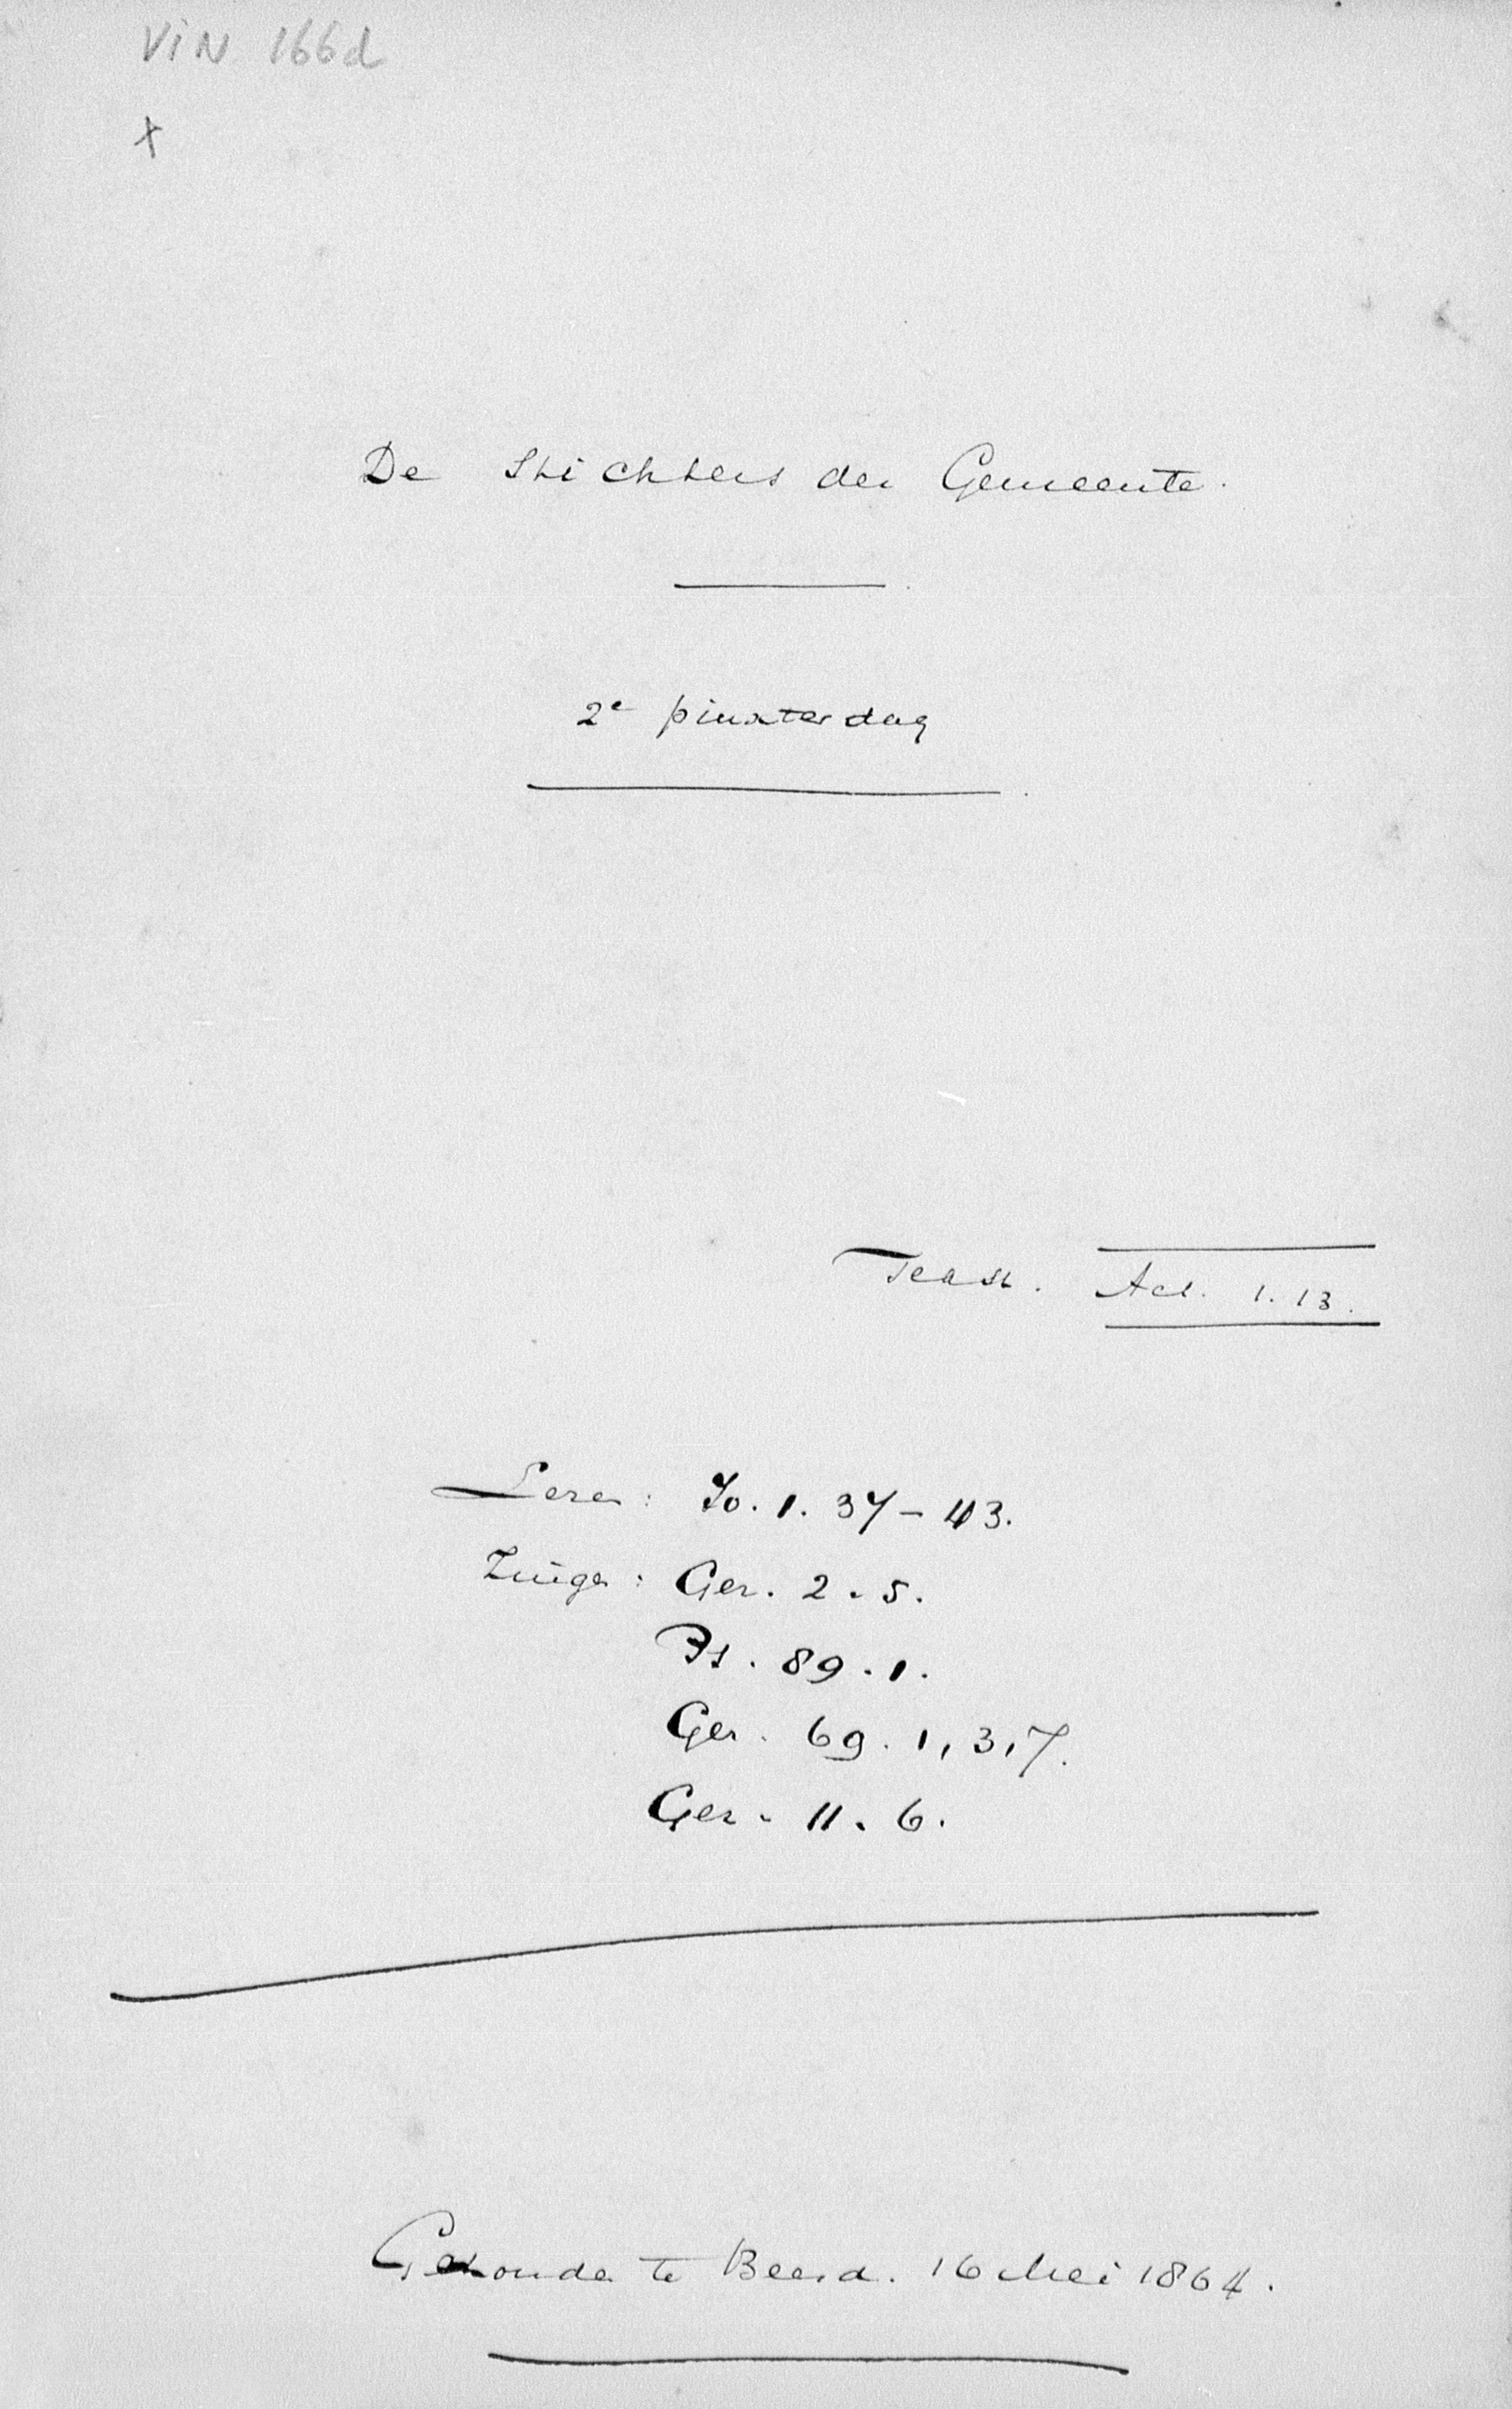 VIN 166d
x
De Stichters der Gemeente.
2e pinxterdag
Text. Act. 1.13.
Leze: Jo. 1. 37-43.
Zinge: Gez. 2.5.
Ps. 89.1.
Gez. 69. 1,3,7.
Gez. 11.6.
Gehouden te Beesd. 16 Mei 1864.